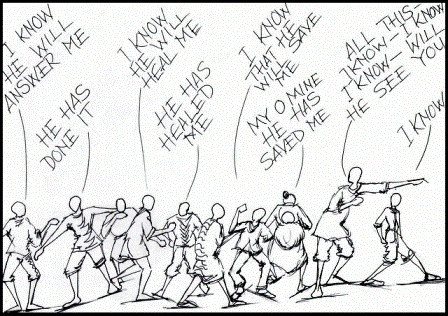 I KNOW
HE WILL
ANSWER ME
HE HAS
DONE IT
I KNOW
HE WILL
HEAL ME
HE HAS
HEALED
ME
I KNOW
THAT HE
WILL SAVE
ME
MY O MINE
HE HAS
SAVED ME
ALL THIS-
I KNOW-I KNOW
I KNOW- WILL
HE SEE YOU
I KNOW